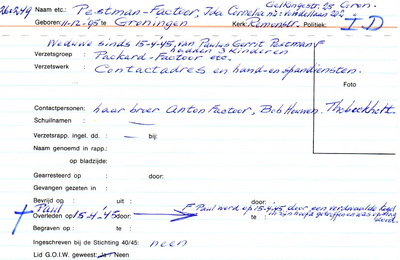 Gelkingestr. 28 Gron.
Naam etc.: Pestman-Factoor, Ida Cornelia
Geboren: 11-12-'95 te Groningen Kerk: Remonstr. Politiek: I D
Weduwe sinds 15-4-45, van Paulus Gerrit Pestman
hadden 3 kinderen
Verzetsgroep : Packard-Factoor etc.
Verzetswerk : Contactadres en hand-en-spandiensten.
Foto
Contactpersonen: haar broer Anton Factoor, Bob Houwen,
Schuilnamen :
Verzetsrapp. ingel. dd. : bij:
Naam genoemd in rapp.:
op bladzijde:
Gearresteerd op : door:
Gevangen gezeten in :
Bevrijd op : uit : door:
Paul
Overleden op 15-4-'45 door: Paul werd op 15-4-'45 door een verdwaalde kogel
te : in zijn hoofd getroffen en was op slag dood.
Begraven op : te :
Ingeschreven bij de Stichting 40/45: neen
Lid G.O.I.W. geweest: Ja/Neen